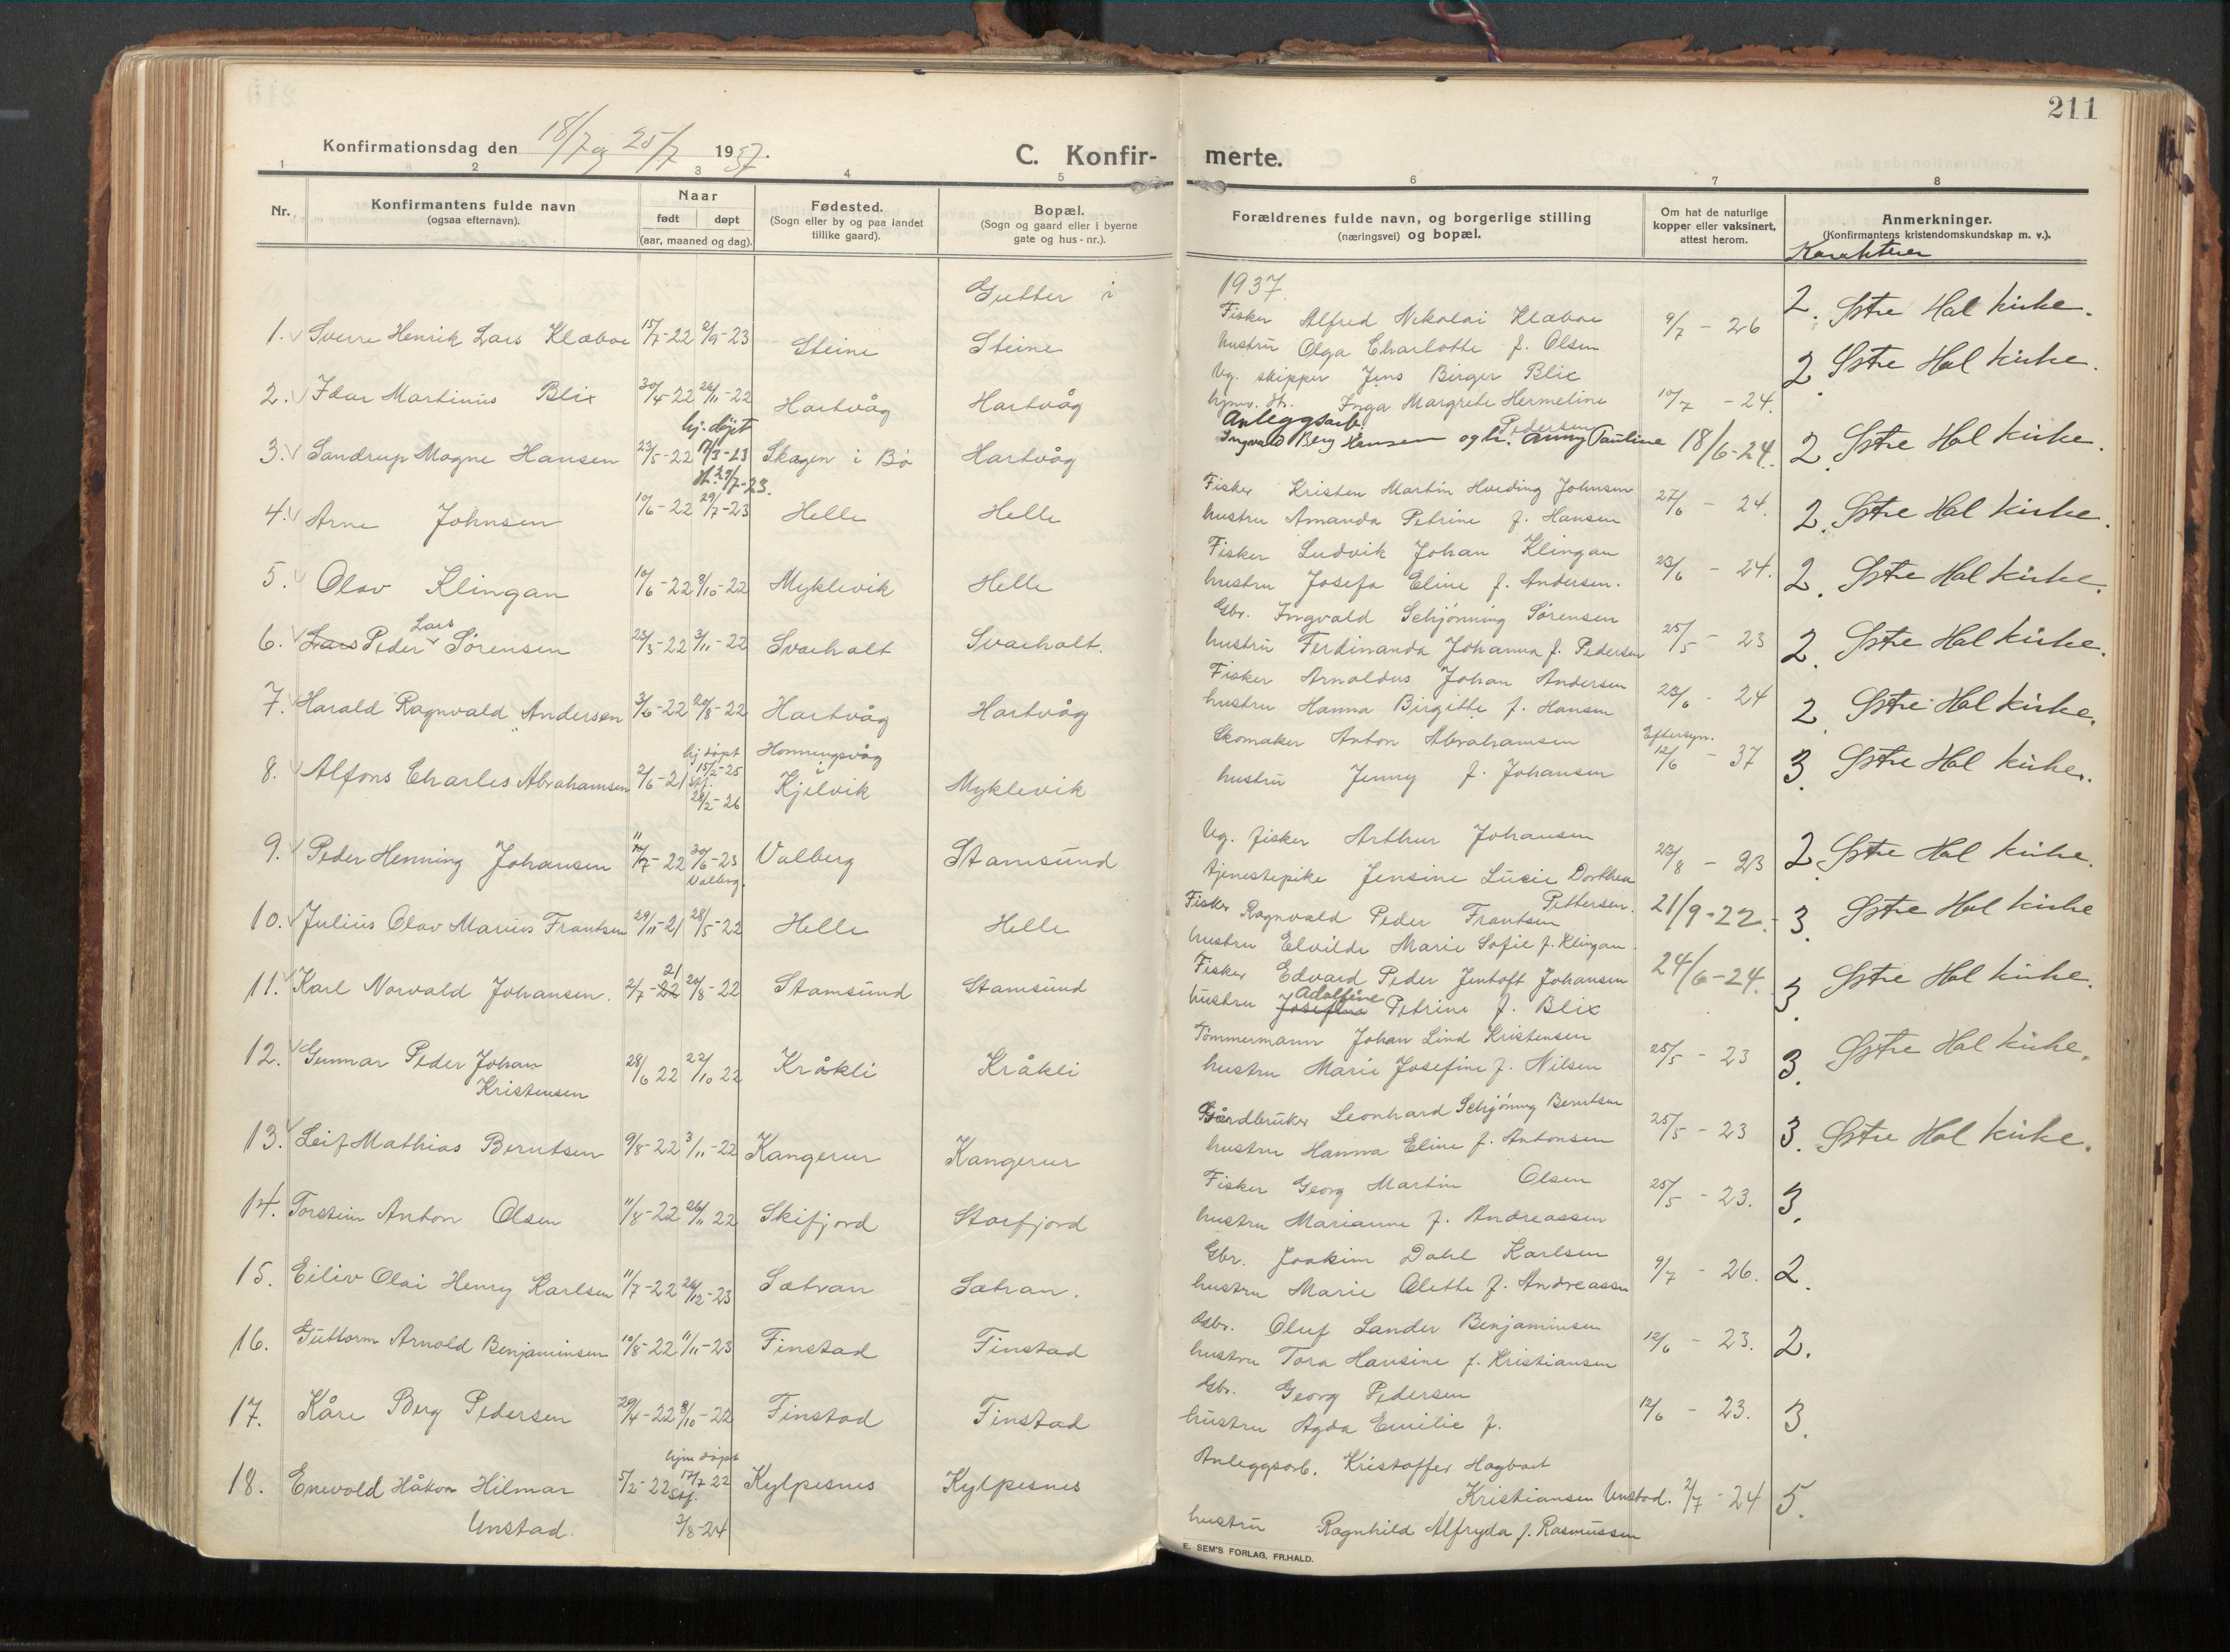 211
Konfirmationsdag den 18/7 og 25/7 1937.
C. Konfirmerte.
1 2 3 4 5 6 7 8
Nr.
Konfirmantens fulde navn
(ogsaa efternavn).
Naar
født døpt
(aar, maaned og dag).
Fødested.
(Sogn eller by og paa landet
tillike gaard).
Bopæl.
(Sogn og gaard eller i byerne
gate og hus-nr.).
Forældrenes fulde navn, og borgerlige stilling
(næringsvei) og bopæl.
Om hat de naturlige
kopper eller vaksinert,
attest herom.
Anmerkninger.
(Konfirmantens kristendomskundskap m. v.).
Karakterer
Gutter i 1937
1. Sverre Henrik Lars Klæboe 15/7-22 2/9-23 Steine Steine
Fisker Alfred Nikolai Klæboe
hustru Olga Charlotte f. Olsen
9/7 - 26 2. Østre Hol kirke.
2. Idar Martinus Blix 30/4-22 26/11-22 Hartvåg Hartvåg
Ug. skipper Jens Birger Blix
Inga Margrete Hermeline
Pedersen
10/7 - 24. 2. Østre Hol kirke.
3. Sandrup Magne Hansen 23/5-22 hj. døpt 17/3-23 st. 29/7-23. Skagen i Bø Hartvåg
Anleggsarb.
Ingvald Berg Hansen og h. Anny Pauline
18/6-24. 2. Østre Hol kirke.
4. Arne Johnsen 10/6-22 29/7-23 Helle Helle
Fisker Kristen Martin Hveding Johnsen
hustru Amanda Petrine f. Hansen
27/6 - 24. 2. Østre Hol kirke.
5. Olav Klingan 10/6-22 8/10-22 Myklevik Helle
Fisker Ludvik Johan Klingan
hustru Josefa Eline f. Andersen.
23/6 - 24. 2. Østre Hol kirke.
6. Lars Peder Lars Sørensen 23/5-22 3/11-22 Svarholt Svarholt.
Gbr. Ingvald Schjønning Sørensen
hustru Ferdinanda Johanna f. Pedersen
25/5 - 23 2. Østre Hol kirke.
7. Harald Ragnvald Andersen 3/6-22 20/8-22 Hartvåg Hartvåg
Fisker Arnoldus Johan Andersen
hustru Hanna Birgitte f. Hansen
23/6 - 24 2. Østre Hol kirke.
8. Alfons Charles Abrahamsen 2/6-21 hj døpt 15/2-25 stf. 28/2-26 Honningsvåg i Kjelvik Myklevik
Skomaker Anton Abrahamsen
hustru Jenny f. Johansen
Eftersyn. 12/6 - 37 3. Østre Hol kirke.
9. Peder Henning Johansen 11/7-22 30/6-23 Valberg. Valberg Stamsund
Ug. fisker Arthur Johansen
tjenestepike Jensine Lucie Dorthea
Pettersen.
23/8 - 23 2. Østre Hol kirke.
10. Julius Olav Marius Frantsen 29/11-21 28/5-22 Helle Helle
Fisker Ragnvald Peder Frantsen
hustru Elvilde Marie Sofie f. Klingan.
21/9-22. 3. Østre Hol kirke
11. Karl Norvald Johansen. 2/7-22 21 20/8-22 Stamsund Stamsund
Fisker Edvard Peder Jentoft Johansen
hustru Josefine Adolfine Petrine f. Blix
24/6-24. 3. Østre Hol kirke.
12. Gunnar Peder Johan
Kristensen 28/6 22 22/10 22 Kråkli Kråkli
Tømmermann Johan Lind Kristensen
hustru Marie Josefine f. Nilsen
25/5 - 23 3. Østre Hol kirke.
13. Leif Mathias Berntsen 9/8-22 3/11-22 Kangerur Kangerur
Gårdbruker Leonhard Schjønng Berntsen
hustru Hanna Eline f. Antonsen
25/5 - 23 3. Østre Hol kirke.
14. Torstein Anton Olsen 11/8-22 26/11 22 Skifjord Storfjord
Fisker Georg Martin Olsen
hustru Marianne f. Andreassen
25/5 - 23. 3.
15. Eiliv Olai Henry Karlsen 11/7-22 26/12-23 Sætran Sætran.
Gbr. Joakim Dahl Karlsen
hustru Marie Olette f. Andreassen
9/7 - 26. 2.
16. Guttorm Arnold Benjaminsen 10/8-22 11/11-23 Finstad Finstad
Gbr. Oluf Lander Benjaminsen
hustru Tora Hansine f. Kristiansen
12/6 - 23. 2.
17. Kåre Berg Pedersen 29/4-22 8/10-22 Finstad Finstad
Gbr. Georg Pedersen
hustru Agda Emilie f.
12/6 - 23. 3.
18. Enevold Håkon Hilmar
Unstad. 5/2-22 hjm døpt 17/7 22 stf. 3/8-24 Kylpesnes Kylpesnes
Anleggsarb. Kristoffer Hagbart
Kristiansen Unstad.
hustru Ragnhild Alfryda f. Rasmussen
2/7 - 24 5.
E. SEM'S FORLAG, FR.HALD.